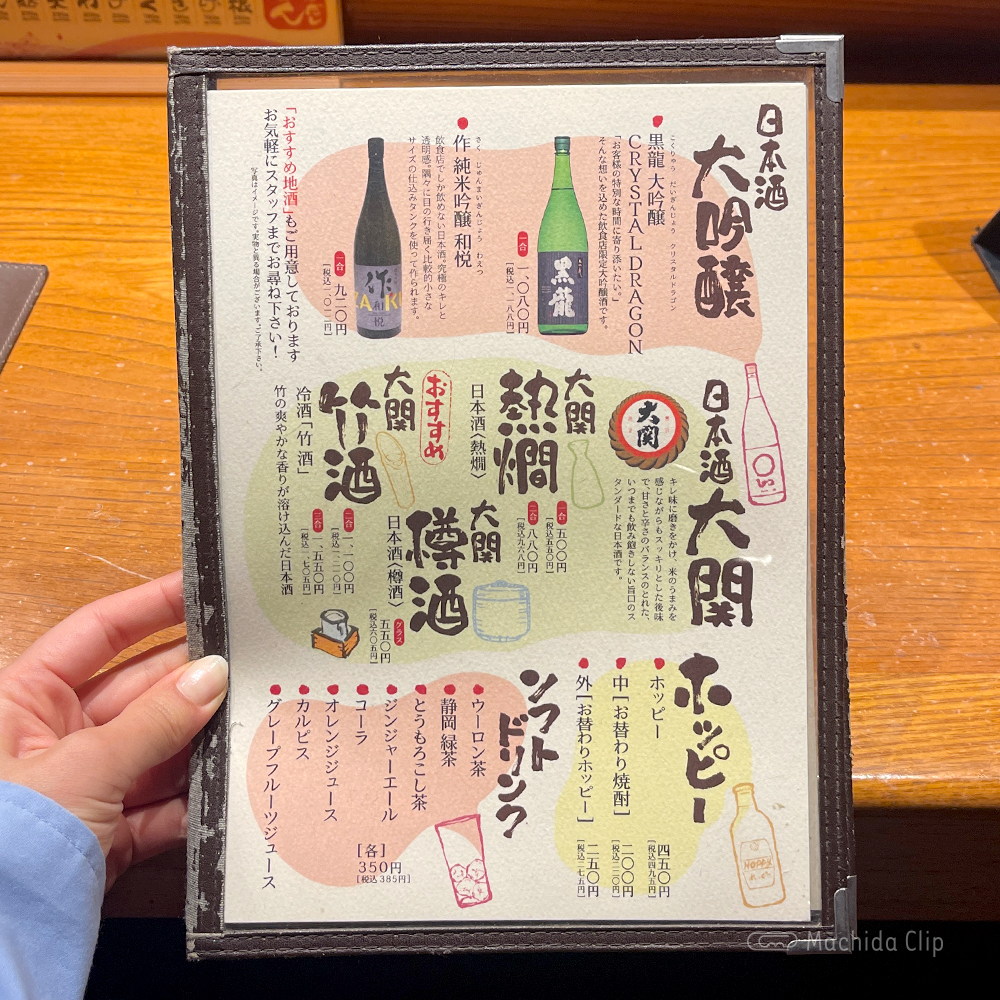 日本酒
大吟醸
こくりゅう だいぎんじょう クリスタルドラゴン
黒龍 大吟醸
CRYSTAL DRAGON
「お客様の特別な時間に寄り添いたい。」
そんな想いを込めた飲食店限定大吟醸酒です。
黒龍
一合 一、〇八〇円
[税込一、一八八円]
さく じゅんまいぎんじょう わえつ
作 純米吟醸 和悦
飲食店でしか飲めない日本酒。究極のキレと
透明感。隅々に目の行き届く比較的小さな
サイズの仕込みタンクを使って作られます。
作
悦
一合 九二〇円
[税込一、〇一二円]
「おすすめ地酒」もご用意しております
お気軽にスタッフまでお尋ね下さい!
写真はイメージです。実物と異る場合がございます。ご了承下さい。
日本酒
大関
キレ味に磨きをかけ、米のうまみを
感じながらもスッキリとした後味
で、甘さと辛さのバランスのとれた、
いつまでも飲み飽きしない旨口のス
タンダードな日本酒です。
大関
大関
熱燗
日本酒〈熱燗〉
一合 五〇〇円
[税込五五〇円]
二合 八八〇円
[税込九六八円]
大関
樽酒
日本酒〈樽酒〉
グラス 五五〇円
[税込六〇五円]
おすすめ
大関
竹酒
冷酒「竹酒」
竹の爽やかな香りが溶け込んだ日本酒
二合 一、一〇〇円
[税込一、二一〇円]
三合 一、五五〇円
[税込一、七〇五円]
ホッピー
ホッピー 四五〇円
[税込四九五円]
中[お替わり焼酎] 二〇〇円
[税込二二〇円]
外[お替わりホッピー] 二五〇円
[税込二七五円]
HOPPY
ソフト
ドリンク
ウーロン茶
静岡 緑茶
とうもろこし茶
ジンジャーエール
コーラ
オレンジジュース
カルピス
グレープフルーツジュース
[各]
350円
[税込385円]
Machida Clip